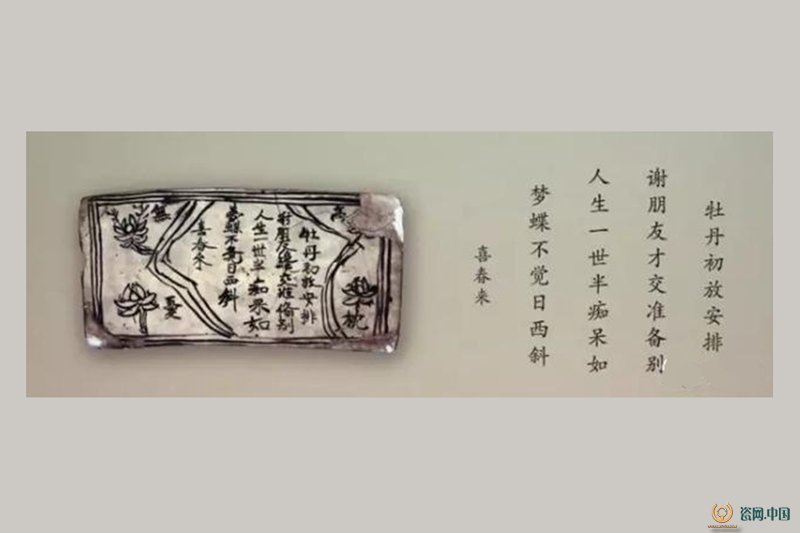 牡丹初放安排
谢朋友才交准备别
人生一世半痴呆如
梦蝶不觉日西斜
喜春来
枕
牡丹初放安排
朋友
人生一世半痴呆如
蝶不日西斜
喜春來
無
憂
瓷网.中国